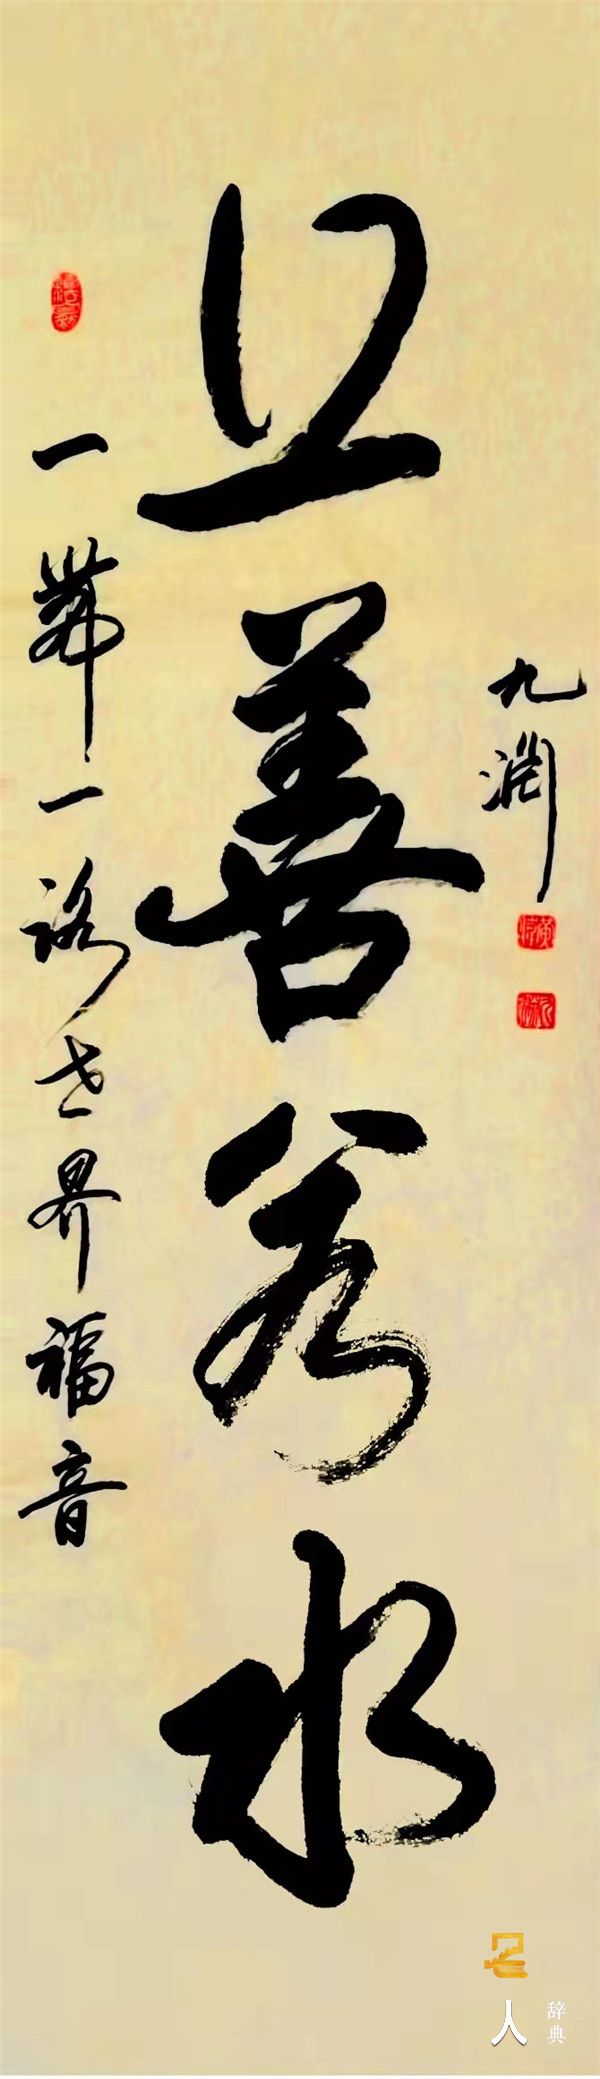 一帶一路世界福音
上善若水
九渊
名人
辞典